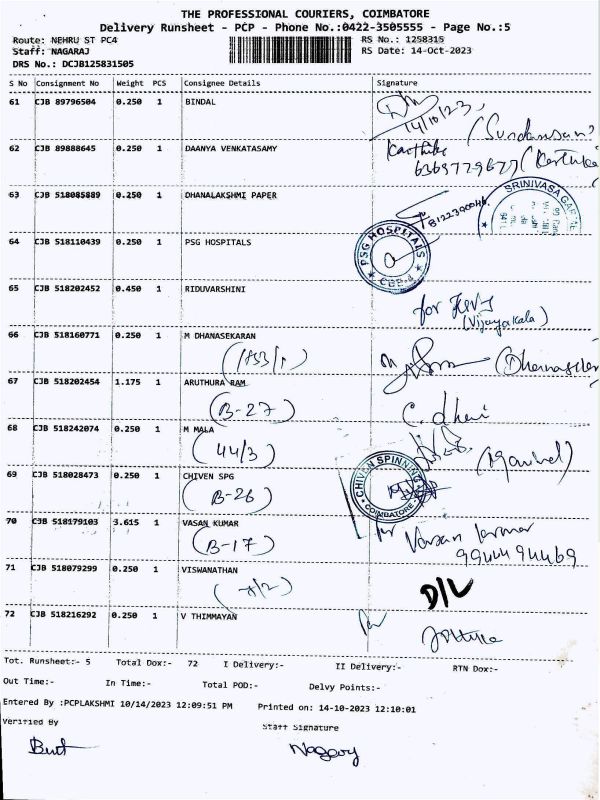 THE PROFESSIONAL COURIERS, COIMBATORE
Delivery Runsheet - PCP - Phone No.:0422-3505555 - Page No.:5
Route: NEHRU ST PC4 RS No.: 1258315
Staff: NAGARAJ RS Date: 14-Oct-2023
DRS No.: DCJB125831505
S No Consignment No Weight PCS Consignee Details Signature
61 CJB 89796504 0.250 1 BINDAL
14/10/23,
62 CJB 89888645 0.250 1 DAANYA VENKATASAMY Karthika
63 CJB 518085889 0.250 1 DHANALAKSHMI PAPER
SRINIVASA
64 CJB 518110439 0.250 1 PSG HOSPITALS PSG HOSPITALS
65 CJB 518202452 0.450 1 RIDUVARSHINI for
(Vijayakala)
66 CJB 518160771 0.250 1 M DHANASEKARAN
67 CJB 518202454 1.175 1 ARUTHURA RAM
(B-27)
68 CJB 518242074 0.250 1 M MALA
(44/3)
69 CJB 518028473 0.250 1 CHIVEN SPG CHIVEN SPINNING COIMBATORE
(B-26)
70 CJB 518179103 3.615 1 VASAN KUMAR
(B-17) 9944494469
71 CJB 518079299 0.250 1 VISWANATHAN
D/L
72 CJB 518216292 0.250 1 V THIMMAYAN
Tot. Runsheet:- 5 Total Dox:- 72 I Delivery:- II Delivery:- RTN Dox:-
Out Time:- In Time:- Total POD:- Delvy Points:-
Entered By :PCPLAKSHMI 10/14/2023 12:09:51 PM Printed on: 14-10-2023 12:10:01
Verified By Staff Signature